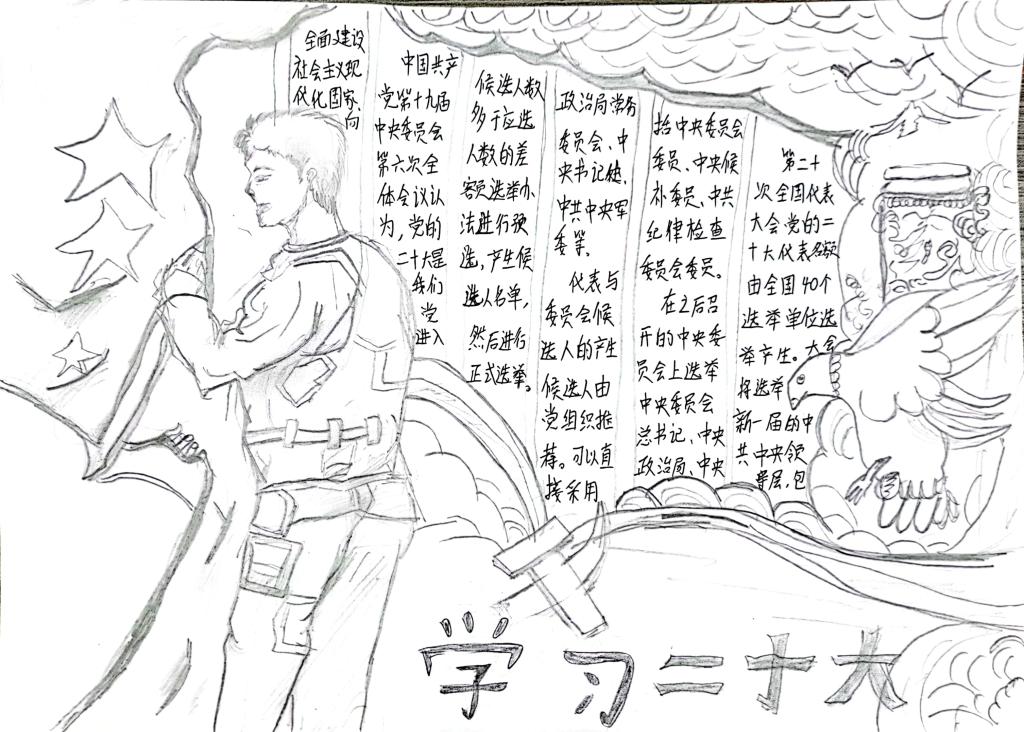 第二十
次全国代表
大会,党的二
十大代表名额
由全国40个
选举单位选
举产生。大会
将选举
新一届的中
共中央领
导层,包
括中央委员会
委员、中央候
补委员、中共
纪律检查
委员会委员。
在之后召
开的中央委
员会上选举
中央委员会
总书记、中央
政治局、中央
政治局常务
委员会、中
央书记处、
中共中央军
委等。
代表与
委员会候
选人的产生
候选人由
党组织推
荐。可以直
接采用
候选人数
多于应选
人数的差
额选举办
法进行预
选,产生候
选人名单,
然后进行
正式选举。
中国共产
党第十九届
中央委员会
第六次全
体会议认
为,党的
二十大是
我们
党
进入
全面建设
社会主义现
代化国家、
向
学习二十大